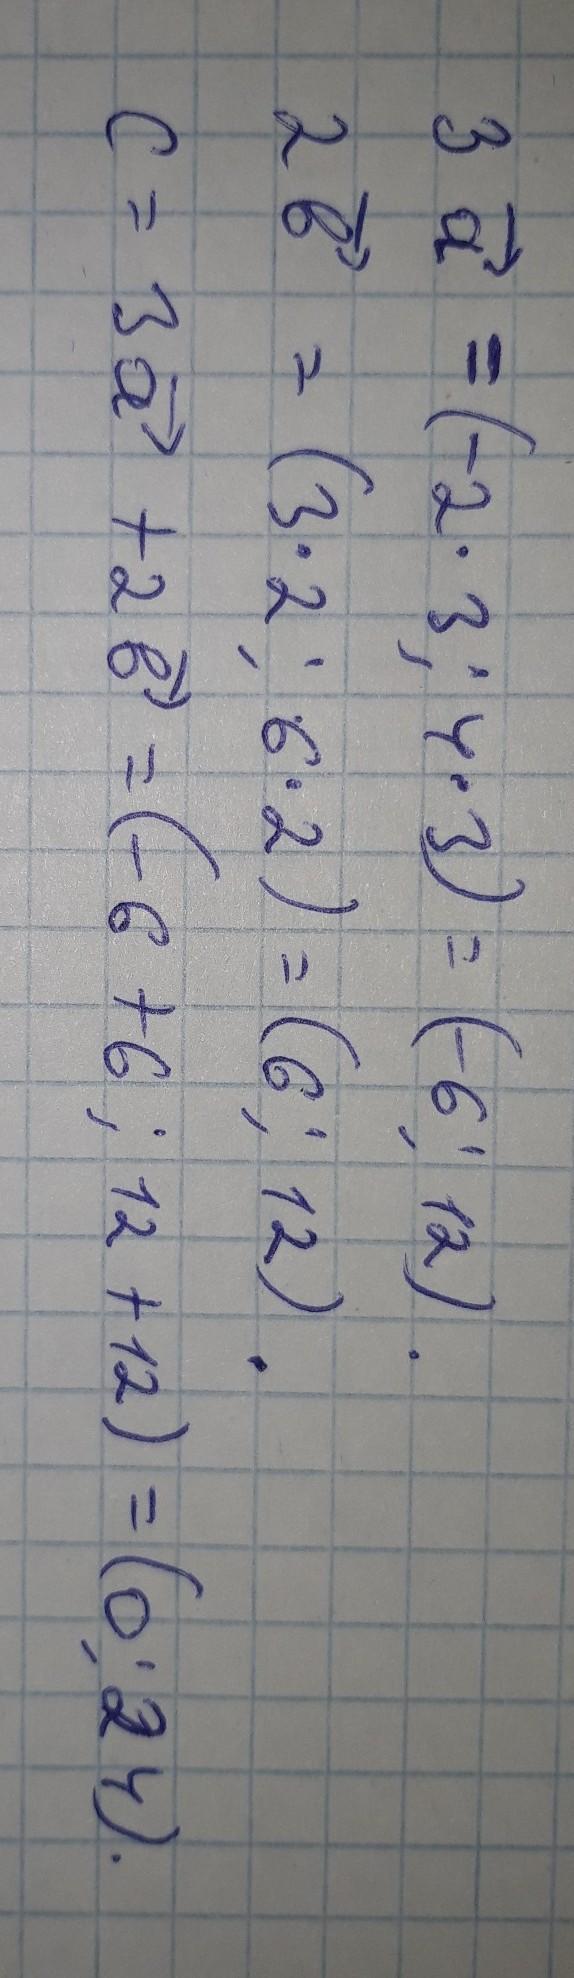 3a⃗ = (-2·3; 4·3) = (-6; 12).
2b⃗ = (3·2; 6·2) = (6; 12).
c = 3a⃗ + 2b⃗ = (-6+6; 12+12) = (0; 24).